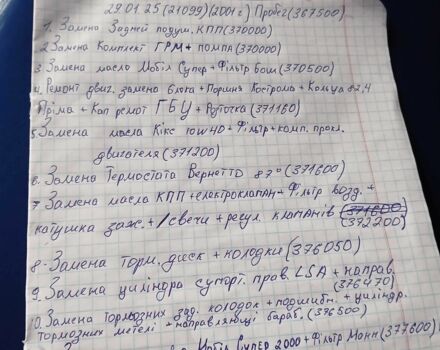 29.01.25 (21099) (2001г) Пробег (367500)
1. Замена Задней подуш. КПП (370000)
2 Замена Комплект ГРМ + помпа (370000)
3 Замена масло Мобіл Супер + Фільтр Бош (370500)
4. Ремонт двиг. замена блока + Поршня Кострома + Кольца 82,4
Пріма + Кап ремот ГБЦ + (371160)
5. Замена масла Кікс 10W40 + Фільтр + комп. прокл.
двигателя (371200)
6. Замена Термостата Вернетто 87° (371600)
7. Замена масла КПП + електроклапан + Фільтр возд. +
катушка заж. + / свечи + регул. клапанів (371600)
(372200)
8 - Замена торм. диск + колодки (376050)
9. Замена циліндра супорт. прав. LSA + направ.
(376470)
10. Замена тормозних зад. колодок + подшипн. + циліндр.
тормозних метелі + направляющі бараб. (376500)
Мобіл Супер 2000 + Фільтр Манн (377600)